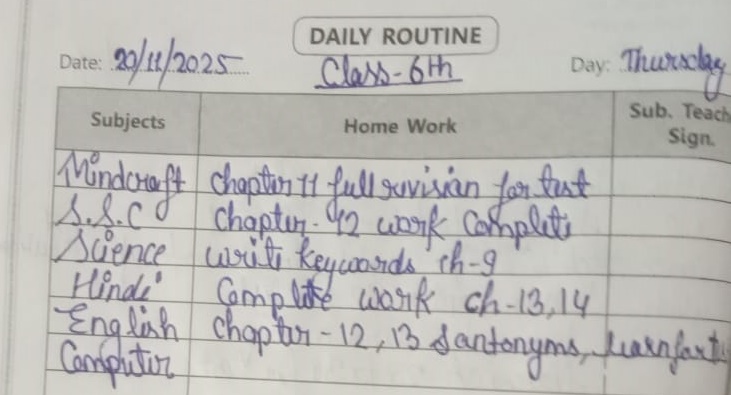 DAILY ROUTINE
Date: 20/11/2025 Class-6th Day: Thursday
Subjects Home Work Sub. Teach Sign.
Mindcraft chapter 11 full revision for test
S.S.C chapter-12 work complete
Science write keywords ch-9
Hindi Complete work ch-13,14
English chapter-12,13 antonyms, learn for
Computer